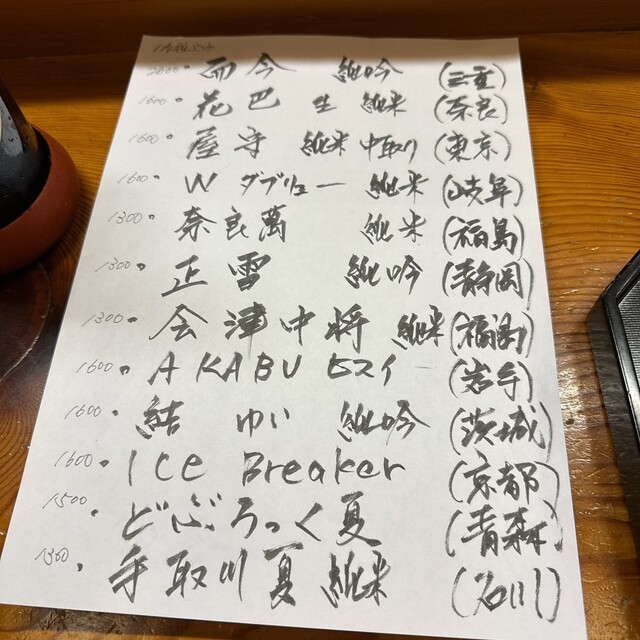 2600. 而今 純吟 (三重)
1600. 花巴 生 純米 (奈良)
1600. 屋守 純米 中取り (東京)
1600. W ダブリュー 純米 (岐阜)
1300. 奈良萬 純米 (福島)
1300. 正雪 純吟 (静岡)
1300. 会津中将 純米 (福島)
1600. AKABU ヒスイ (岩手)
1600. 結 ゆい 純吟 (茨城)
1600. Ice Breaker (京都)
1500. どぶろっく夏 (青森)
1300. 手取川夏 純米 (石川)